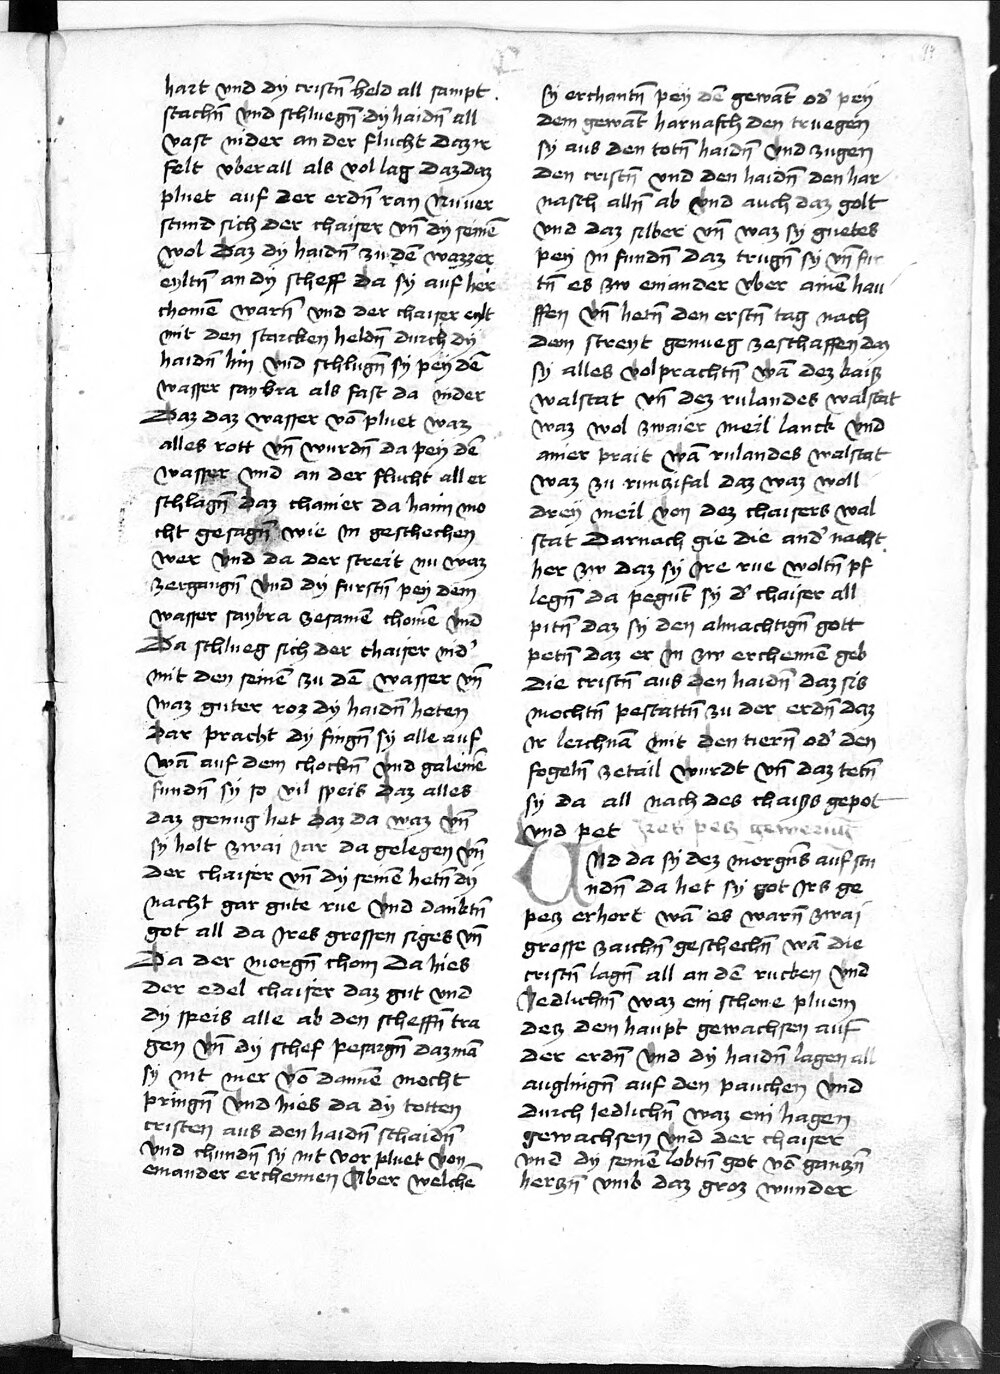 94
hart vnd dy cristn̄ held all sampt
stachn̄ vnd schluegn̄ dy haidn̄ all
vast nider an der flucht daz ir
felt vberall als vol lag daz daz
pluet auf der erdn̄ ran Nu ver
stund sich der chaiser vn̄ dy seinē
wol daz dy haidn̄ zu dē wazzer
eyltn̄ an dy scheff da sy auf her
chomē warn̄ vnd der chaiser eylt
mit den starcken heldn̄ durch dy
haidn̄ hin vnd schlugn̄ sy pey dē
wasser saybra als fast da nider
Daz daz wasser vō pluet waz
alles rott vn̄ wurdn̄ da pey dē
wasser vnd an der flucht all er
schlagn̄ daz chainer da haim mo
cht gesagn̄ wie in geschechen
wer vnd da der streit nu waz
zergangn̄ vnd dy furstn̄ pey dem
wasser saybra zesamē chomē vnd
Da schlueg sich der chaiser nid'
mit den seinē zu dē wasser vn̄
waz guter roz dy haidn̄ heten
dar pracht dy fingn̄ sy alle auf
wā auf dem chockn̄ vnd galeinē
fundn̄ sy so vil speis daz alles
daz genug het daz da waz vn̄
sy holt zwai Jar da gelegen vn̄
der chaiser vn̄ dy seinen hetn̄ dy
nacht gar gute rue vnd danktn̄
got all da Jres grossen siges vn̄
Da der morgn̄ chom Da hies
der edel chaiser daz gut vnd
dy speis alle ab den scheffn̄ tra
gen vn̄ dy schef pesargn̄ daz mā
sy nit mer vō dannē mocht
pringn̄ vnd hies da dy totten
cristen aus den haidn̄ schaidn̄
vnd chundn̄ sy nit vor pluet von
einander erchennen Aber welchē
sy erchantn̄ pey dē gewāt od' pey
dem gewāt harnasch den truegen
sy aus den totn̄ haidn̄ vnd zugen
den cristn̄ vnd den haidn̄ den har
nasch alln̄ ab vnd auch daz golt
vnd daz silber vn̄ waz sy guetes
pey in fundn̄ daz trugn̄ sy vn̄ fur
tn̄ es zw einander vber ainē hau
ffen vn̄ hetn̄ den erstn̄ tag nach
dem streyt genueg zeschaffen daz
sy alles volprachtn̄ wā dez kaisz
walstat vn̄ dez rulandes walstat
waz wol zwaier meil lanck vnd
ainer prait wā rulandes walstat
waz zu runzifal daz waz woll
drey meil von dez chaisers wal
stat Darnach gie die and' nacht
her zw daz sy Jre rue woltn̄ pf
legn̄ da pegūt sy d' chaiser all
pitn̄ daz sy den almachtign̄ gott
petn̄ daz er in zw erchennē geb
die cristn̄ aus den haidn̄ daz sis
mochtn̄ pestattn̄ zu der erdn̄ daz
ir leichnā mit den tiern̄ od' den
fogeln̄ zetail wurdt vn̄ daz tetn̄
sy da all nach des chaisz gepot
vnd pet
Vnd da sy dez morgn̄s auf stu
ndn̄ da het sy got Jrs ge
petz erhort wā es warn̄ zwai
grosse zaichn̄ geschechn̄ wā die
cristn̄ lagn̄ all an dē rucken vnd
Jedlichm̄ waz ein schone pluem
dez dem haupt gewachsen auf
der erdn̄ vnd dy haidn̄ lagen all
auglingn̄ auf den pauchen vnd
durch Jedlichn̄ waz ein hagen
gewachsen vnd der chaiser
vnd dy seinē lobtn̄ got vō ganzn̄
herzn̄ vmb daz groz wunder